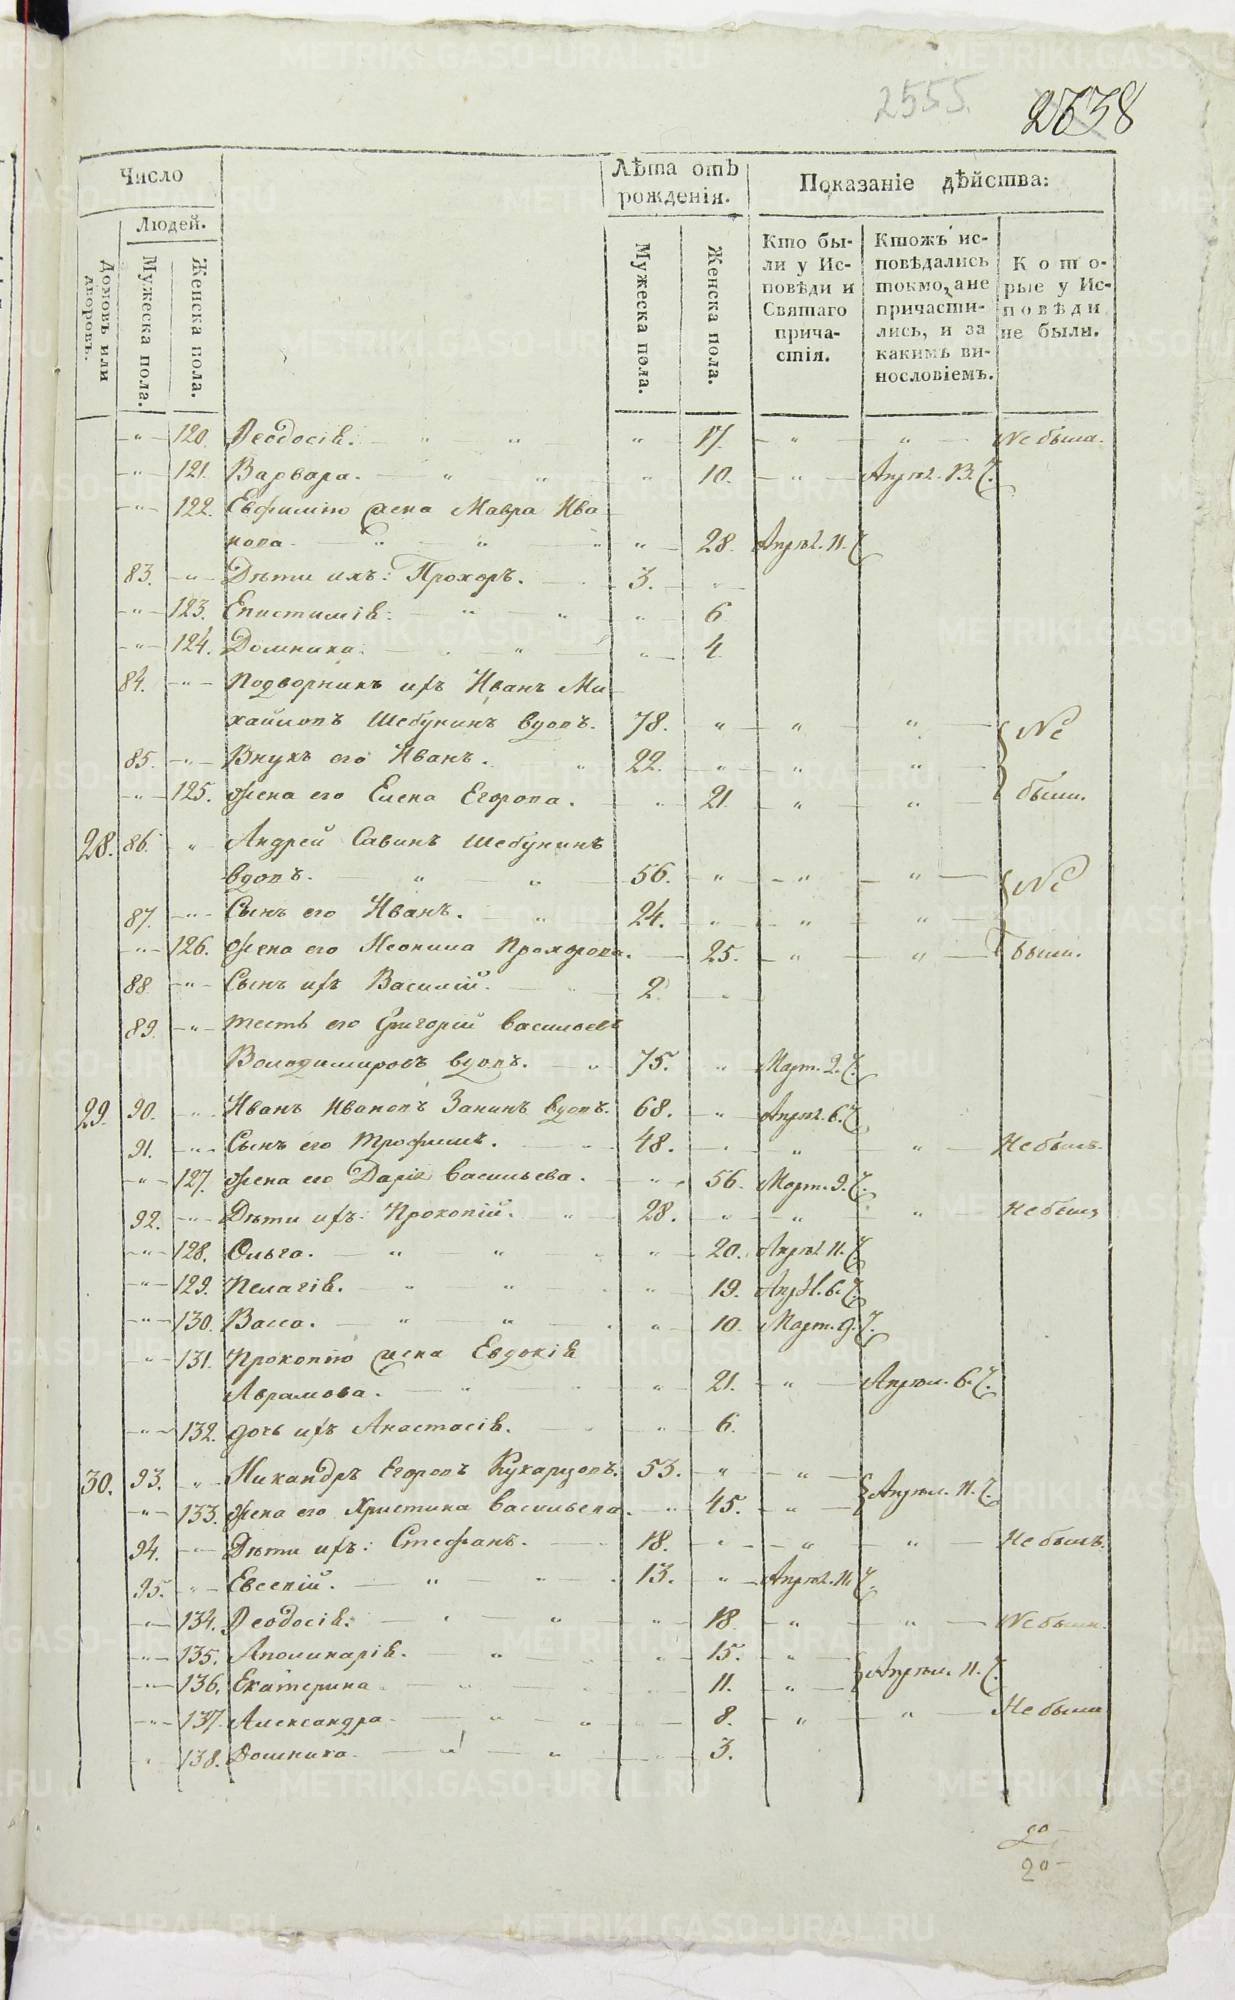 2555.
2638
Число
Людей.
Домовъ или дворовъ.
Мужеска пола.
Женска пола.
Лѣта отъ рожденія.
Мужеска пола.
Женска пола.
Показаніе дѣйства:
Кто были у Исповѣди и Святаго причастія.
Ктожъ исповѣдались токмо, а не причастились, и за какимъ винословіемъ.
Которые у Исповѣди не были.
120. Ѳеодосія. 17. Не была.
121. Варвара. 10. Апрѣл. 13. Ч.
122. Евфимію жена Мавра Ива
нова 28. Апрѣл. 11. Ч.
83. Дѣти ихъ: Прохоръ. 3.
123. Епистимія. 6
124. Домника. 4
84. Подворникъ ихъ Иванъ Ми
хайловъ Шебунинъ вдовъ. 78. Не
85. Внукъ его Иванъ. 22.
125. Жена его Елена Егорова. 21. были.
28. 86. Андрей Савинъ Шебунинъ
вдовъ. 56. Не
87. Сынъ его Иванъ. 24.
126. Жена его Неонила Прохорова. 25. были.
88 Сынъ ихъ Василій. 2.
89. Тесть его Григорій Васильевъ
Володимировъ вдовъ. 75. Март. 2. Ч.
29. 90. Иванъ Ивановъ Занинъ вдовъ. 68. Апрѣл. 6. Ч.
91. Сынъ его Трофимъ. 48. Не былъ.
127. Жена его Дарія Васильева. 56. Март. 9. Ч.
92. Дѣти ихъ: Прокопій. 28. Не былъ
128. Ольга. 20. Апрѣл 11. Ч.
129. Пелагія. 19. Апрѣл. 6. Ч.
130. Васса. 10. Март. 9. Ч.
131. Прокопію жена Евдокія
Аврамова. 21. Апрѣл. 6. Ч.
132. дочь ихъ Анастасія. 6.
30. 93. Никандръ Егоровъ Кухарцовъ. 53. Апрѣл. 11. Ч.
133. Жена его Христина Васильева. 45.
94. Дѣти ихъ: Стефанъ. 18. Не былъ.
95. Евсевій. 13. Апрѣл. 11. Ч.
134. Ѳеодосія. 18. Не была.
135. Аполинарія. 15. Апрѣл. 11. Ч.
136. Екатерина 11.
137. Александра 8. Не была
138. Домника. 3.
20
METRIKI.GASO-URAL.RU